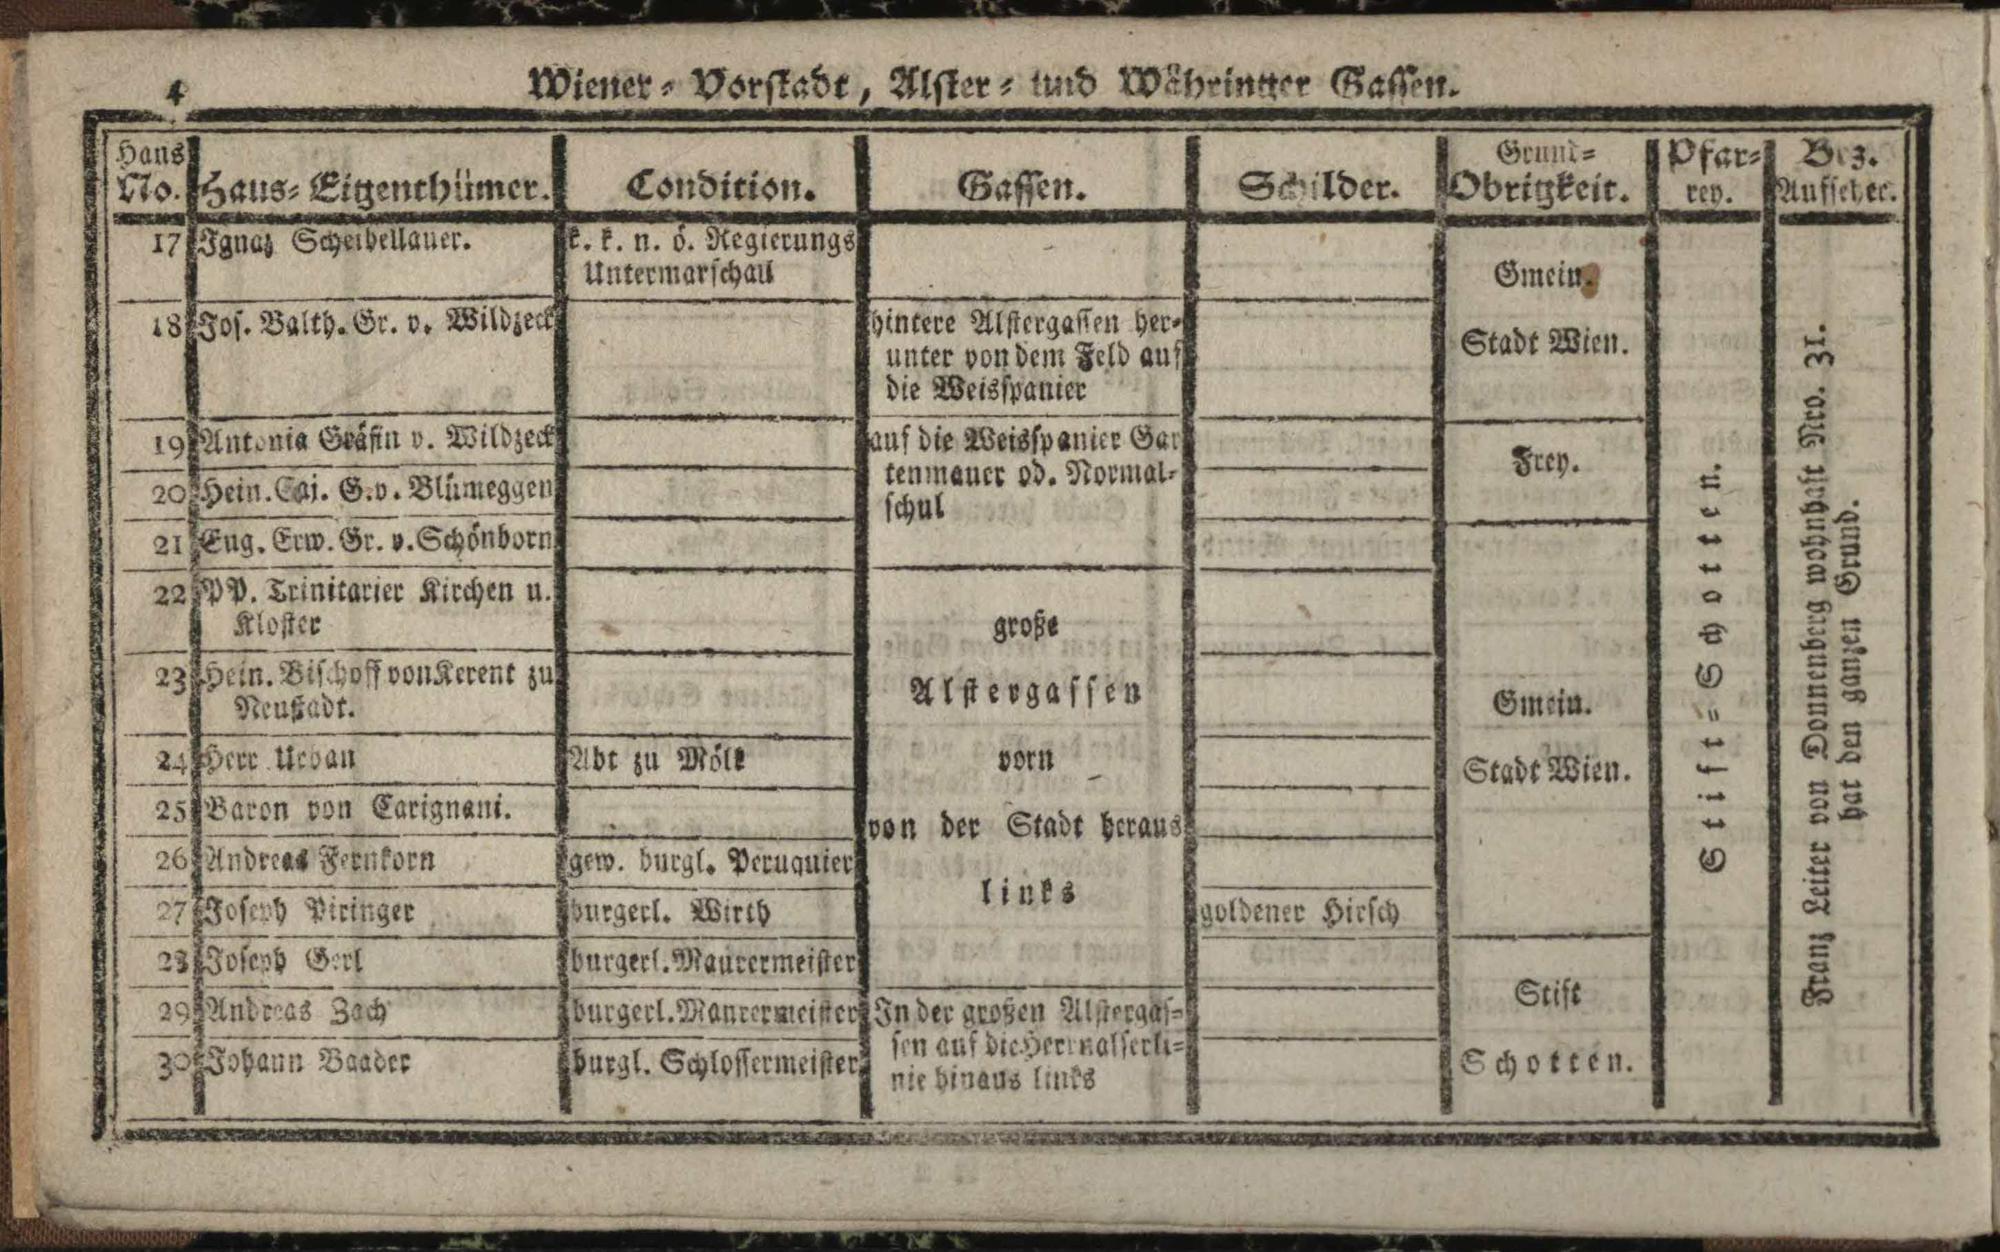 4
Wiener- Vorstadt, Alster- und Währinger Gassen.
Haus No. Haus-Eigenthümer. Condition. Gassen. Schilder. Grund-Obrigkeit. Pfar-rey. Bez. Aufseher.
17 Ignaz Scheibellauer. k. k. n. ö. Regierungs
Untermarschall
Gmein.
18 Jos. Balth. Gr. v. Wildzeck hintere Alstergassen her-
unter von dem Feld auf
die Weisspanier
Stadt Wien.
19 Antonia Gräfin v. Wildzeck auf die Weisspanier Gar
tenmauer od. Normal-
schul
Frey.
20 Hein. Caj. G. v. Blümeggen
21 Eug. Erw. Gr. v. Schönborn
22 PP. Trinitarier Kirchen u.
Kloster
große
23 Hein. Bischoff von Kerent zu
Neustadt.
Alstergassen
Gmein.
24 Herr Urban Abt zu Mölk vorn
Stadt Wien.
25 Baron von Carignani.
von der Stadt heraus
26 Andreas Fernkorn gew. burgl. Peruquier
links
27 Joseph Piringer burgerl. Wirth goldener Hirsch
28 Joseph Gerl burgerl. Maurermeister
Stift
29 Andreas Zach burgerl. Maurermeister In der großen Alstergas-
sen auf die Hernalserli-
nie hinaus links
30 Johann Baader burgl. Schlossermeister
Schotten.
Stift-Schotten.
Franz Leiter von Donnenberg wohnhaft Nro. 31.
hat den ganzen Grund.